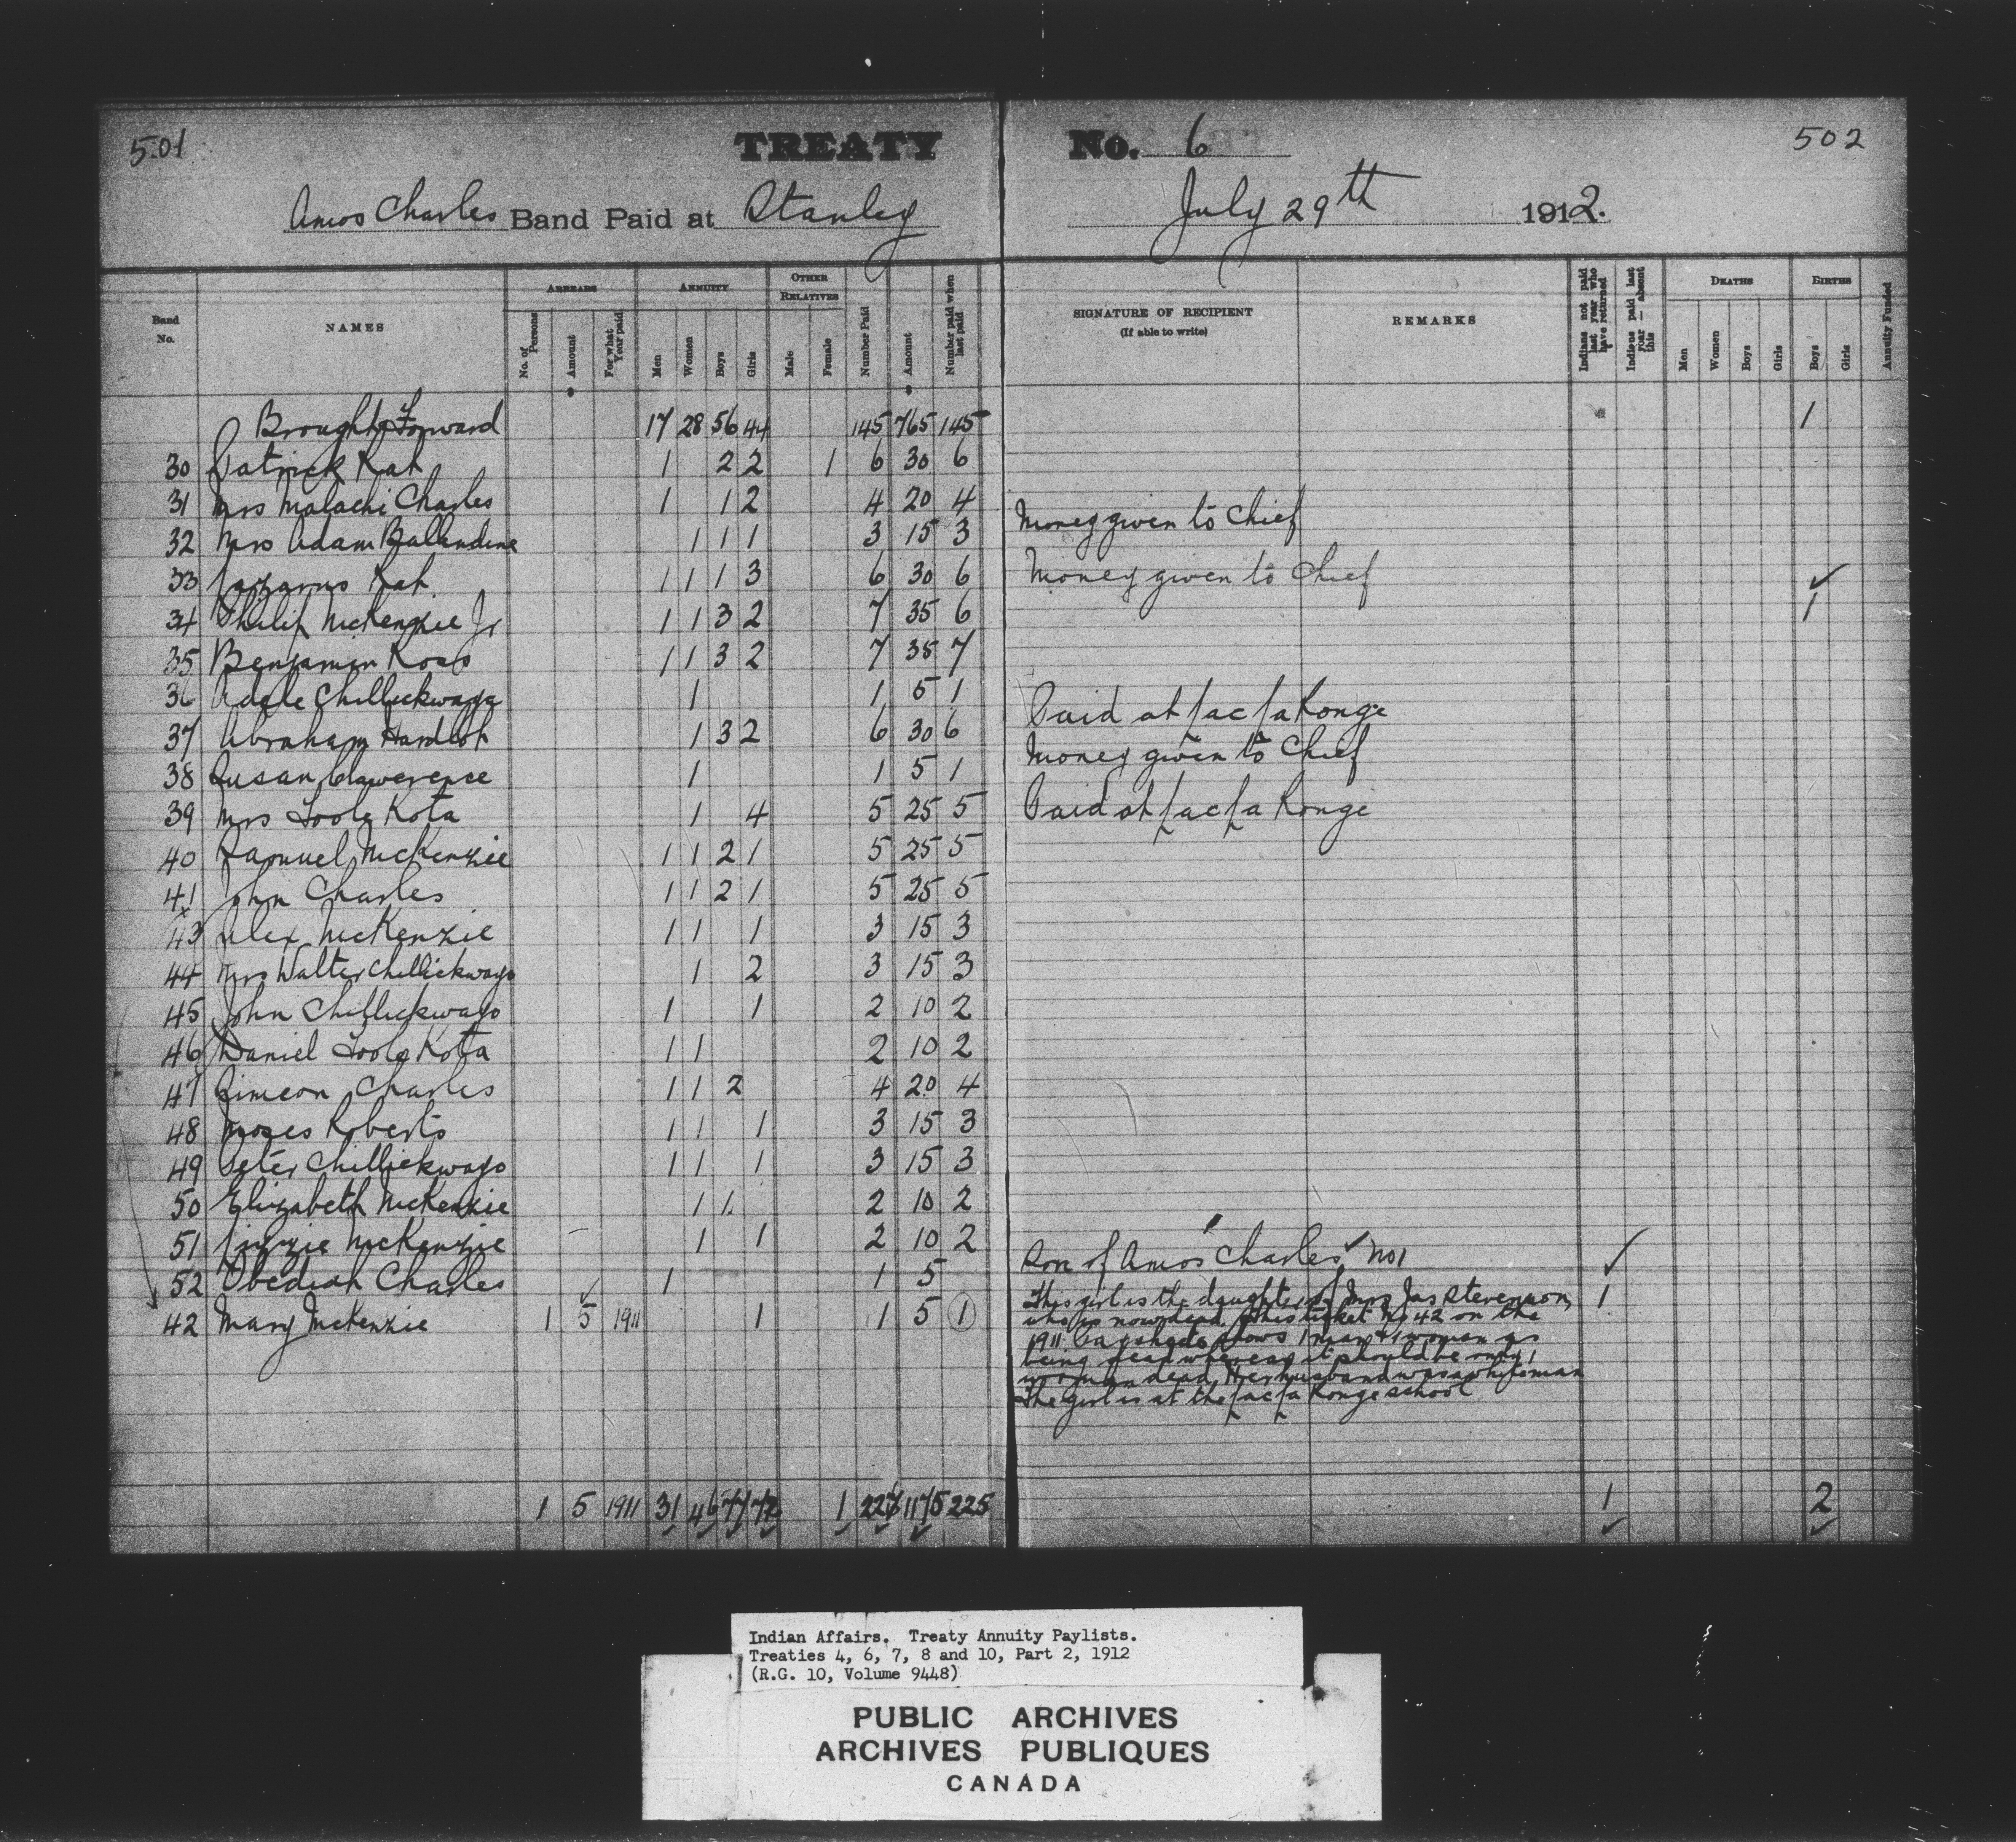 501
TREATY No. 6
502
Amos Charles Band Paid at Stanley July 29th 1912.
Band No.
NAMES
ARREARS
No. of Persons
Amount
For what Year paid
ANNUITY
Men
Women
Boys
Girls
OTHER RELATIVES
Male
Female
Number Paid
Amount
Number paid when last paid
SIGNATURE OF RECIPIENT
(If able to write)
REMARKS
Indians not paid last year who have returned
Indians paid last year — absent this
DEATHS
Men
Women
Boys
Girls
BIRTHS
Boys
Girls
Annuity Funded
Brought Forward 17 28 56 44 145 765 145 1
30 Patrick Rat 1 2 2 1 6 30 6
31 Mrs Malachi Charles 1 1 2 4 20 4
32 Mrs Adam Ballendine 1 1 1 3 15 3 Money given to Chief
33 Lazarus Rat 1 1 1 3 6 30 6 Money given to Chief
34 Philip McKenzie Jr 1 1 3 2 7 35 6 1
35 Benjamin Ross 1 1 3 2 7 35 7
36 Adele Chillickwaya 1 1 5 1 Paid at Lac La Ronge
37 Abraham Hardlot 1 3 2 6 30 6 Money given to Chief
38 Susan 1 1 5 1
39 Mrs Toole Kota 1 4 5 25 5 Paid at Lac La Ronge
40 Samuel McKenzie 1 1 2 1 5 25 5
41 John Charles 1 1 2 1 5 25 5
43 Alex McKenzie 1 1 1 3 15 3
44 Mrs Walter Chillickwayo 1 2 3 15 3
45 John Chillickwayo 1 1 2 10 2
46 Daniel Toole Kota 1 1 2 10 2
47 Simeon Charles 1 1 2 4 20 4
48 Moses Roberts 1 1 1 3 15 3
49 Peter Chillickwayo 1 1 1 3 15 3
50 Elizabeth McKenzie 1 1 2 10 2
51 Lizzie McKenzie 1 1 2 10 2
52 Obediah Charles 1 1 5 Son of Amos Charles No 1
42 Mary McKenzie 1 5 1911 1 1 5 1 This girl is the daughter of Mrs Jas Stevenson, 1
who is now dead. This ticket No 42 on the
1911 Paysheets shows 1 man & 1 woman as
being dead whereas it should be only 1
woman dead, Her husband was a whiteman
The girl is at the Lac La Ronge school
1 5 1911 31 46 77 72 1 227 1175 225 1 2
Indian Affairs. Treaty Annuity Paylists.
Treaties 4, 6, 7, 8 and 10, Part 2, 1912
(R.G. 10, Volume 9448)
PUBLIC ARCHIVES
ARCHIVES PUBLIQUES
CANADA